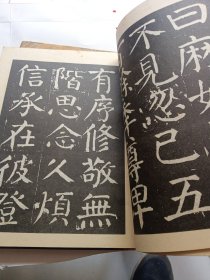 曰麻姑
不見忽已五
餘年尊卑
有序修敬無
階思念久煩
信承在彼登